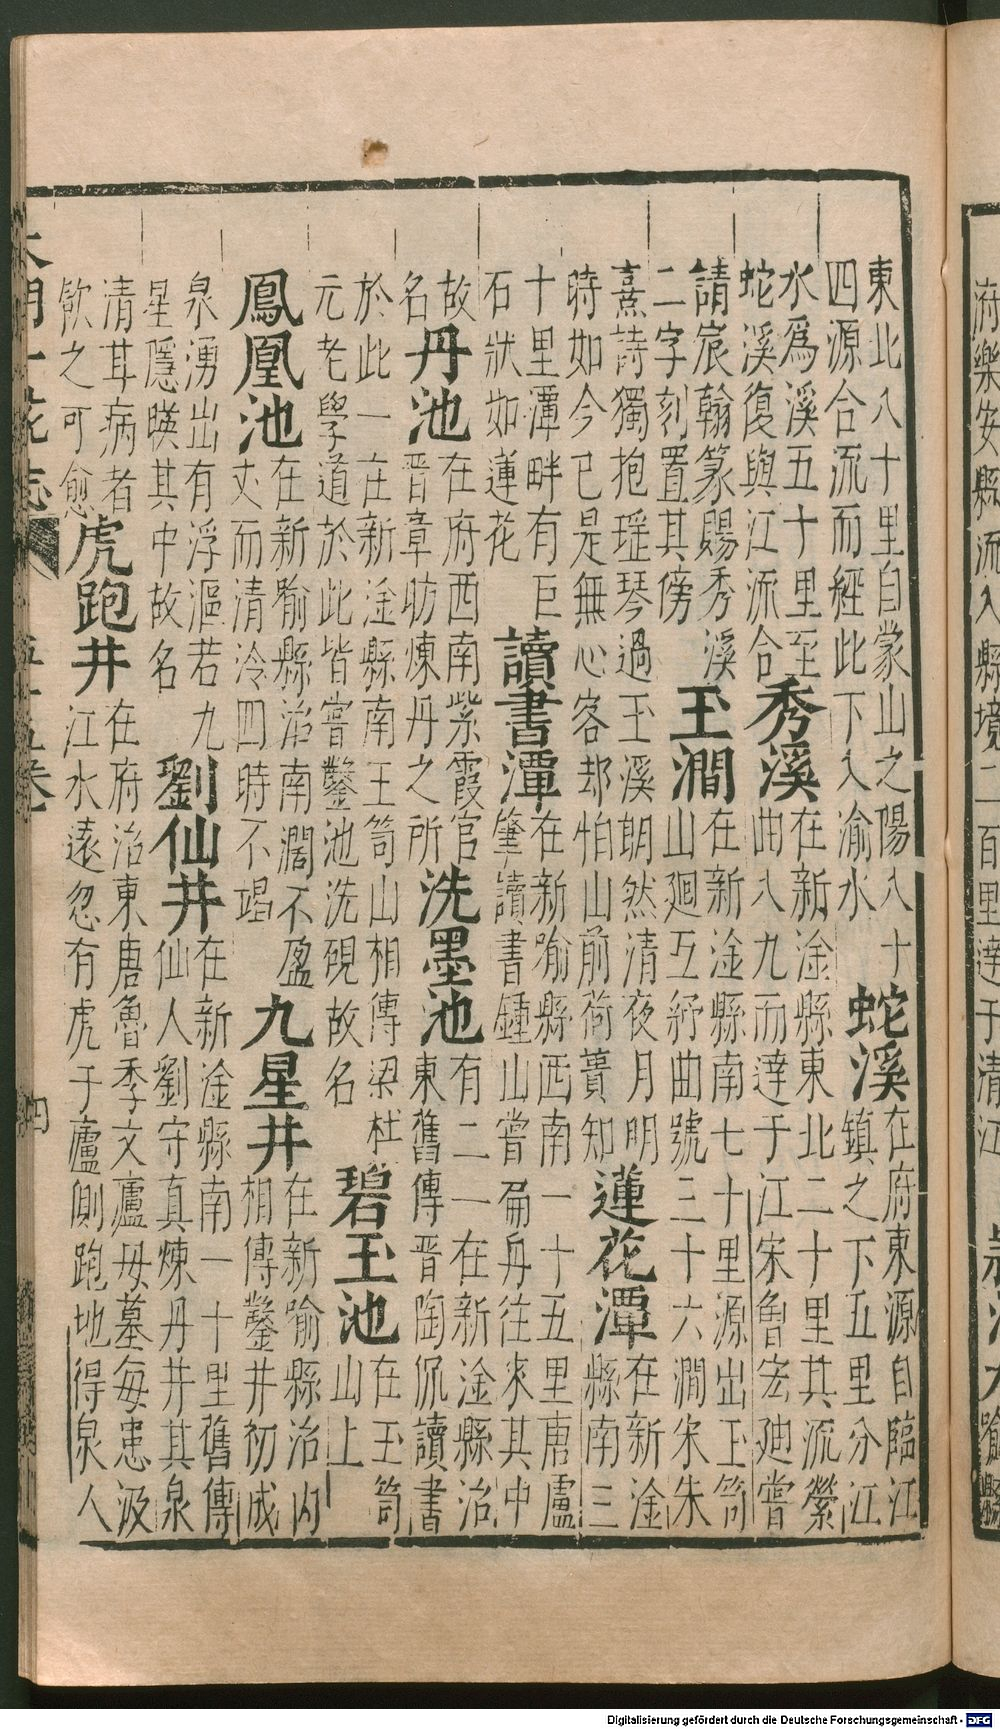 府樂安縣流入縣境二百里達于清江
東北八十里自蒙山之陽八十
四源合流而經此下入渝水
蛇溪
在府東源自臨江
鎮之下五里分江
水爲溪五十里至
蛇溪復與江流合
秀溪
在新淦縣東北二十里其流縈
曲八九而達于江宋魯宏廸嘗
請宸翰篆賜秀溪
二字刻置其傍
玉澗
在新淦縣南七十里源出玉笥
山廻互紆曲號三十六澗宋朱
熹詩獨抱瑶琴過玉溪朗然清夜月明
時如今已是無心客却怕山前荷蕢知
蓮花潭
在新淦
縣南三
十里潭畔有巨
石狀如蓮花
讀書潭
在新喻縣西南一十五里唐盧
肇讀書鍾山嘗扁舟往來其中
故
名
丹池
在府西南紫霞官
晋章昉煉丹之所
洗墨池
有二一在新淦縣治
東舊傳晋陶侃讀書
於此一在新淦縣南玉笥山相傳梁杜
元老學道於此皆嘗鑿池洗硯故名
碧玉池
在玉笥
山上
鳳凰池
在新喻縣治南濶不盈
丈而清泠四時不竭
九星井
在新喻縣治内
相傳鑿井初成
泉湧出有浮漚若九
星隱暎其中故名
劉仙井
在新淦縣南一十里舊傳
仙人劉守真煉丹井其泉
清耳病者
飲之可愈
虎跑井
在府治東唐魯季文廬母墓每患汲
江水遠忽有虎于廬側跑地得泉人
大明一統志 五十五卷 四
Digitalisierung gefördert durch die Deutsche Forschungsgemeinschaft - DFG